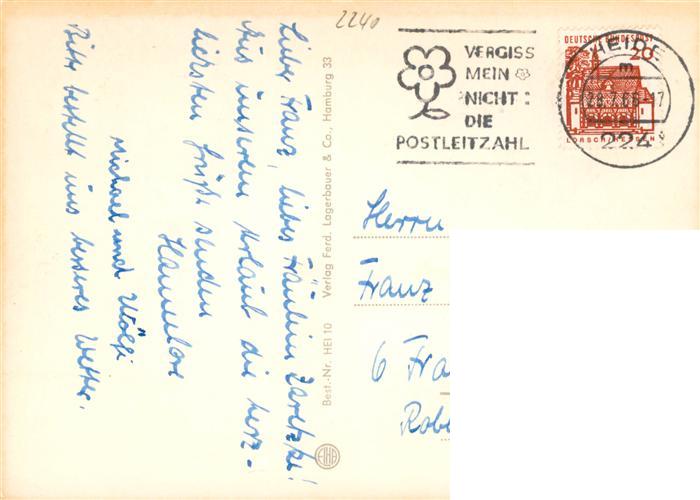 2240
VERGISS
MEIN
NICHT:
DIE
POSTLEITZAHL
DEUTSCHE BUNDESPOST
20
LORSCH/HESSEN
HEIDE
224
Lieber Franz, liebes Fräulein Zaretzke!
Aus unserem Urlaub die herz-
lichsten Grüße senden
Hannelore
Michael und Wölfi
Bitte bestellt uns besseres Wetter.
Best.-Nr. HEI 10 Verlag Ferd. Lagerbauer & Co., Hamburg 33
Herrn
Franz
6 Fra
Robe